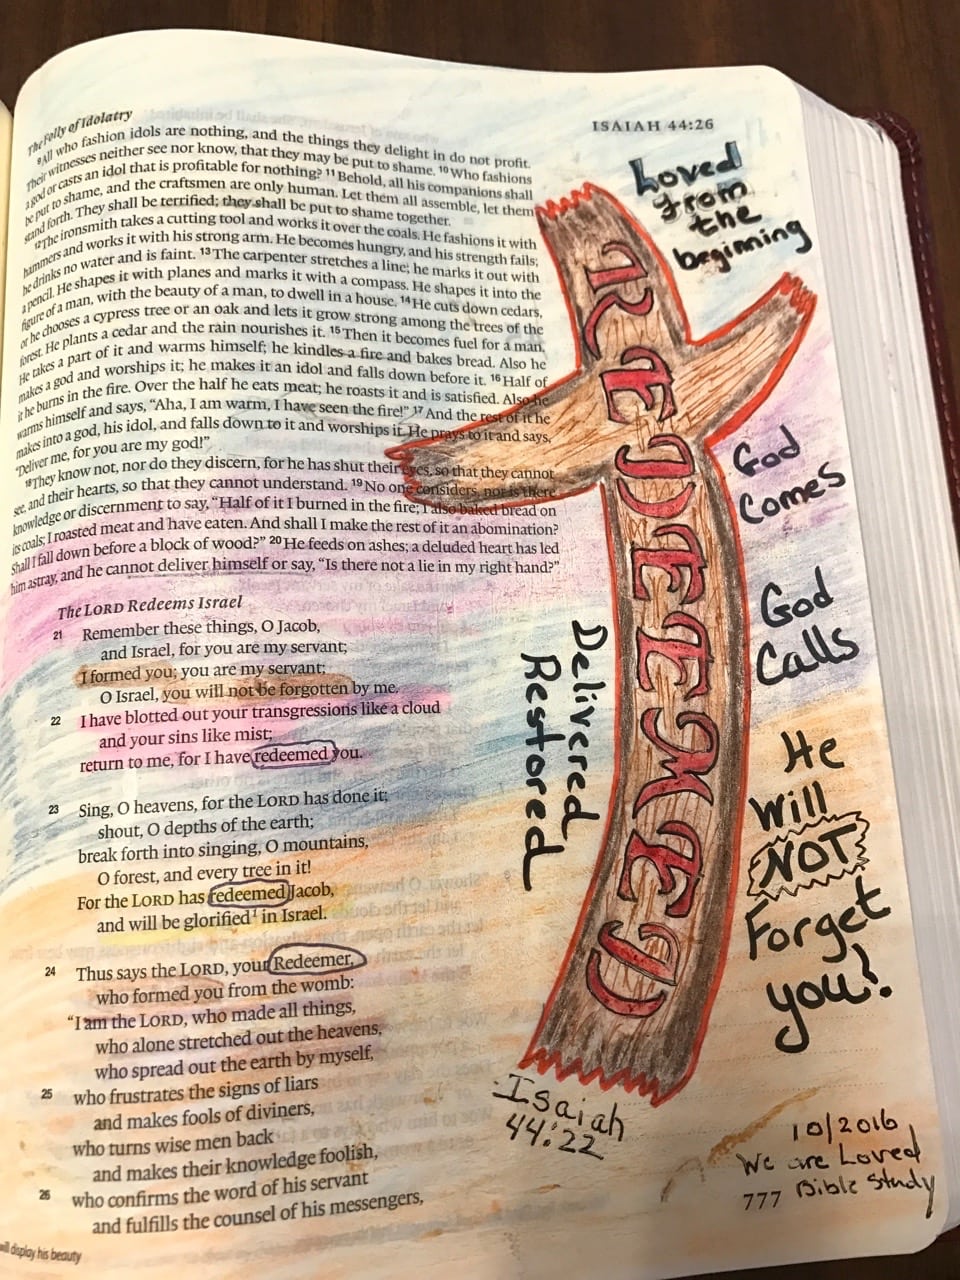 The Folly of Idolatry
ISAIAH 44:26
9 All who fashion idols are nothing, and the things they delight in do not profit.
Their witnesses neither see nor know, that they may be put to shame. 10 Who fashions
a god or casts an idol that is profitable for nothing? 11 Behold, all his companions shall
be put to shame, and the craftsmen are only human. Let them all assemble, let them
stand forth. They shall be terrified; they shall be put to shame together.
12 The ironsmith takes a cutting tool and works it over the coals. He fashions it with
hammers and works it with his strong arm. He becomes hungry, and his strength fails;
he drinks no water and is faint. 13 The carpenter stretches a line; he marks it out with
a pencil. He shapes it with planes and marks it with a compass. He shapes it into the
figure of a man, with the beauty of a man, to dwell in a house. 14 He cuts down cedars,
or he chooses a cypress tree or an oak and lets it grow strong among the trees of the
forest. He plants a cedar and the rain nourishes it. 15 Then it becomes fuel for a man.
He takes a part of it and warms himself; he kindles a fire and bakes bread. Also he
makes a god and worships it; he makes it an idol and falls down before it. 16 Half of
it he burns in the fire. Over the half he eats meat; he roasts it and is satisfied. Also he
warms himself and says, “Aha, I am warm, I have seen the fire!” 17 And the rest of it he
makes into a god, his idol, and falls down to it and worships it. He prays to it and says,
“Deliver me, for you are my god!”
18 They know not, nor do they discern, for he has shut their eyes, so that they cannot
see, and their hearts, so that they cannot understand. 19 No one considers, nor is there
knowledge or discernment to say, “Half of it I burned in the fire; I also baked bread on
its coals; I roasted meat and have eaten. And shall I make the rest of it an abomination?
Shall I fall down before a block of wood?” 20 He feeds on ashes; a deluded heart has led
him astray, and he cannot deliver himself or say, “Is there not a lie in my right hand?”
The LORD Redeems Israel
21 Remember these things, O Jacob,
and Israel, for you are my servant;
I formed you; you are my servant;
O Israel, you will not be forgotten by me.
22 I have blotted out your transgressions like a cloud
and your sins like mist;
return to me, for I have redeemed you.
23 Sing, O heavens, for the LORD has done it;
shout, O depths of the earth;
break forth into singing, O mountains,
O forest, and every tree in it!
For the LORD has redeemed Jacob,
and will be glorified1 in Israel.
24 Thus says the LORD, your Redeemer,
who formed you from the womb:
“I am the LORD, who made all things,
who alone stretched out the heavens,
who spread out the earth by myself,
25 who frustrates the signs of liars
and makes fools of diviners,
who turns wise men back
and makes their knowledge foolish,
26 who confirms the word of his servant
and fulfills the counsel of his messengers,
will display his beauty
Loved
from
the
beginning
REDEEMED
God
Comes
God
Calls
He
Will
NOT
Forget
you!
Delivered
Restored
Isaiah
44:22
10/2016
We are Loved
Bible Study
777